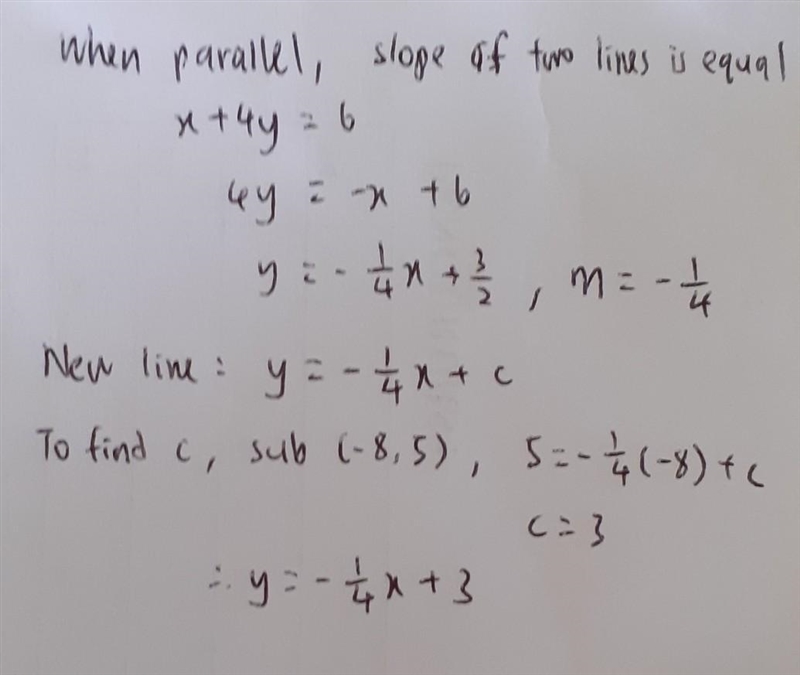 When parallel, slope of two lines is equal
x+4y = 6
4y = -x + 6
y = -1/4 x + 3/2 , m = -1/4
New line : y = -1/4 x + c
To find c, sub (-8,5), 5 = -1/4 (-8) + c
c = 3
∴ y = -1/4 x + 3